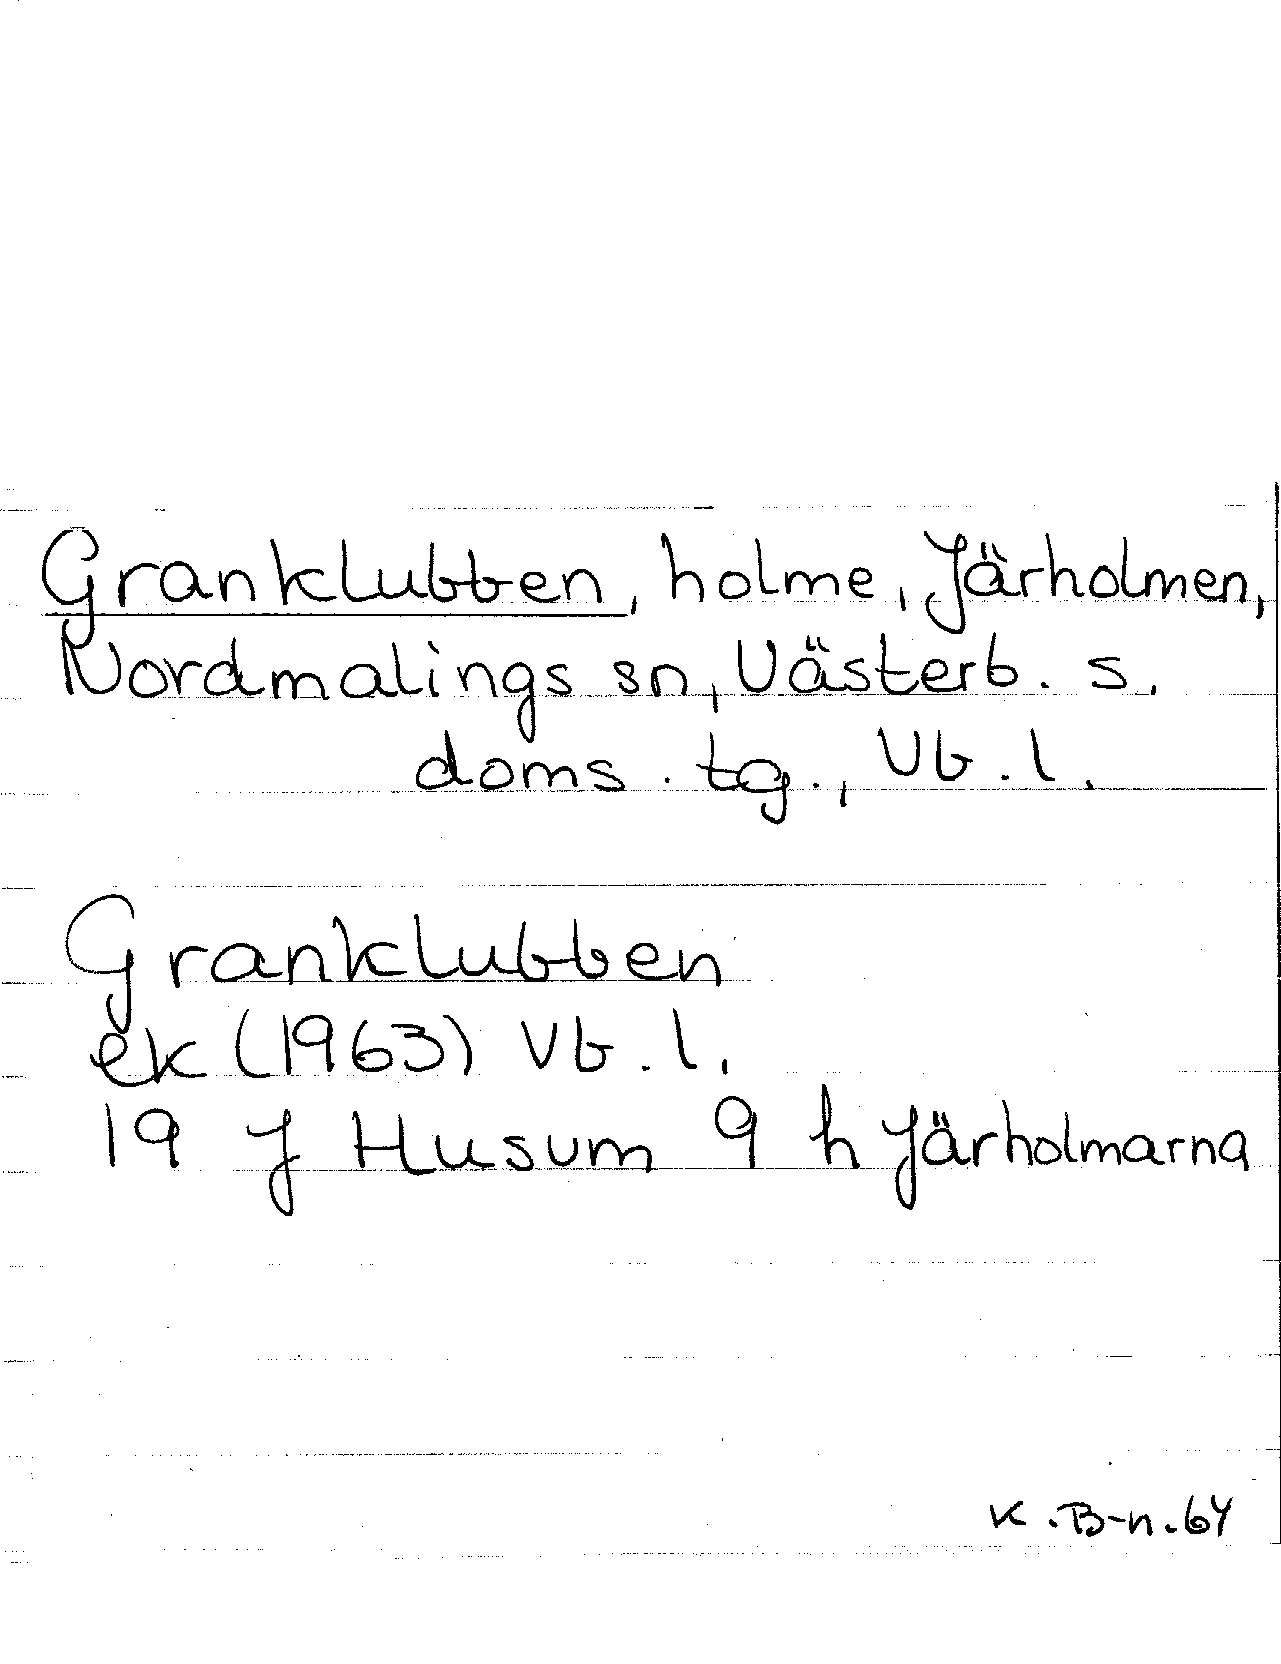 Granklubben, holme, Järholmen,
Nordmalings sn, Västerb. s.
doms. tg., Vb. l.
Granklubben
ek (1963) Vb. l.
19 J Husum 9 h Järholmarna
K.B-n.64